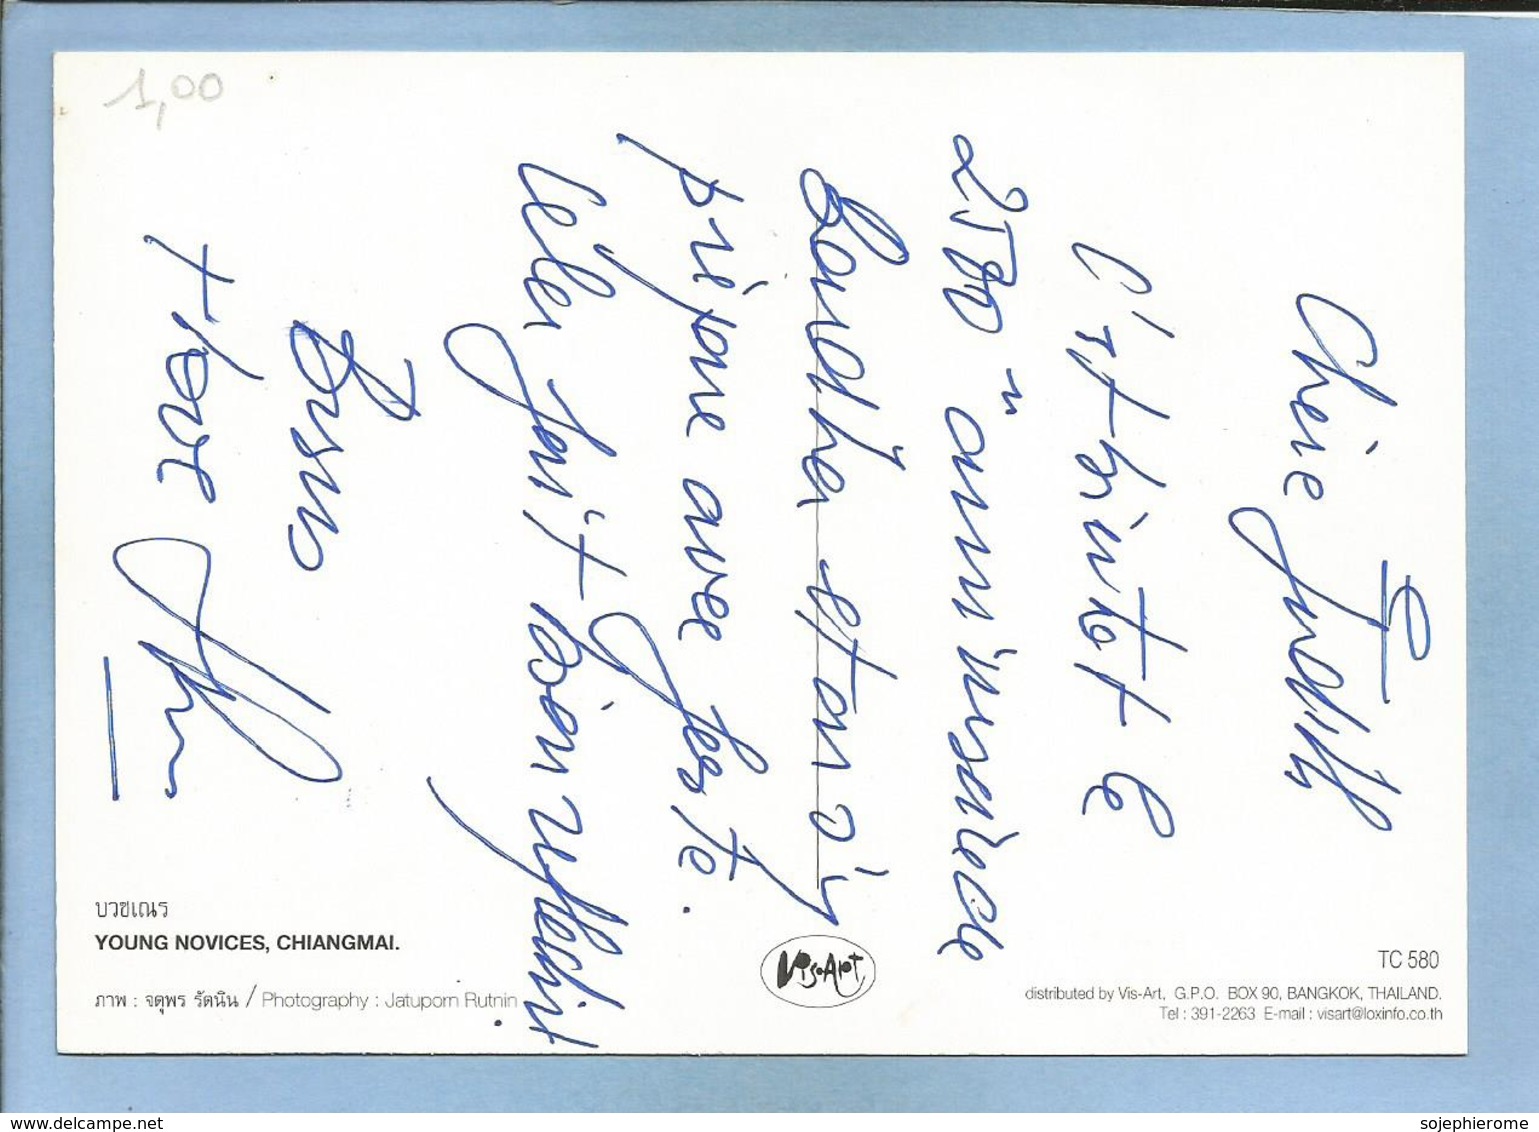 1,00
Chère Judith
C'st bientot le
2500 " anniversaire de
Bouddha et on s'y
prépare avec
Cela fait bien réfléchir
Bisous
+ love
บวชเณร
YOUNG NOVICES, CHIANGMAI.
ภาพ : จตุพร รัตนิน / Photography : Jatuporn Rutnin
Vis-Art
TC 580
distributed by Vis-Art, G.P.O. BOX 90, BANGKOK, THAILAND.
Tel : 391-2263 E-mail : visart@loxinfo.co.th
www.delcampe.net
sojephierome